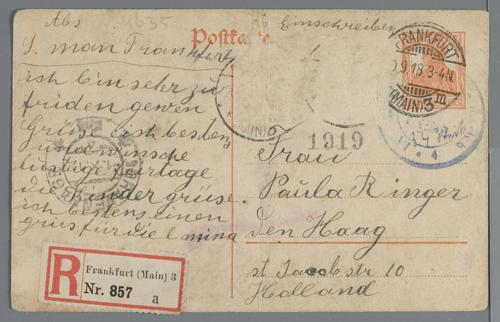 Abs
4635
Einschreiben
Postkarte
S. man Frankfurt
ich bin sehr zu
friden gewen
Grüse ich besten
und wünsche
lustige feiertage
die kinder grüse.
ich bestens einen
grus für die l mina
FRANKFURT
9.18.3-4N
(MAIN) 3
1919
Frau
Paula Ringer
den Haag
st Jacobstr 10
Holland
R
Frankfurt (Main) 3
Nr. 857 a